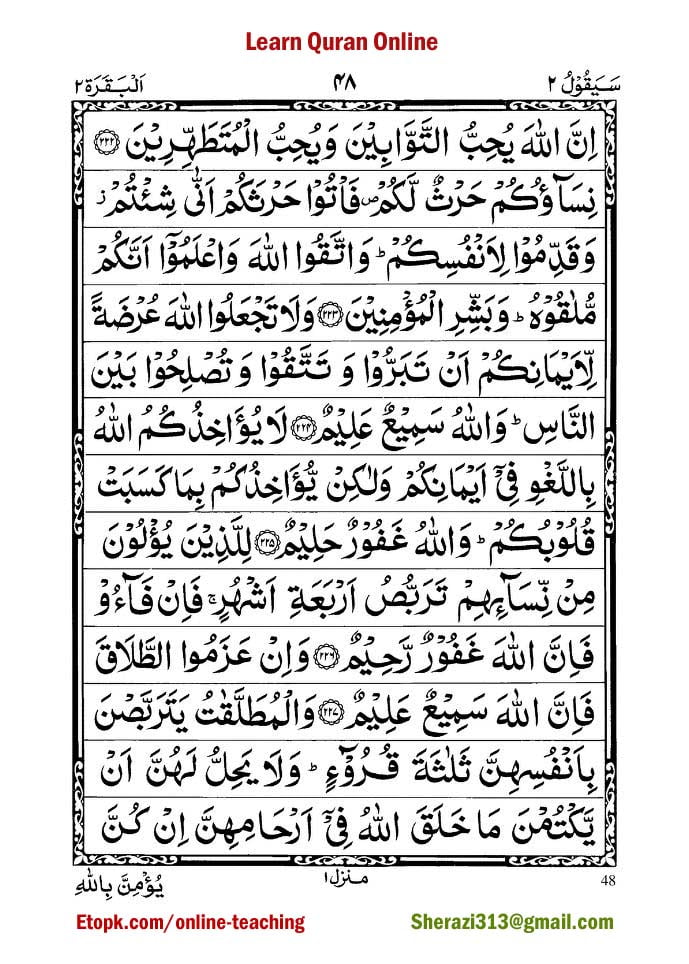 Learn Quran Online
سَيَقُوۡلُ ٢ ۴۸ اَلۡبَقَرَة ٢
اِنَّ اللّٰهَ يُحِبُّ التَّوَّابِيۡنَ وَيُحِبُّ الۡمُتَطَهِّرِيۡنَ ﴿۲۲۲﴾
نِسَآؤُكُمۡ حَرۡثٌ لَّكُمۡ ۖ فَاۡتُوۡا حَرۡثَكُمۡ اَنّٰى شِئۡتُمۡ ز
وَقَدِّمُوۡا لِاَنۡفُسِكُمۡ ؕ وَاتَّقُوا اللّٰهَ وَاعۡلَمُوۡٓا اَنَّكُمۡ
مُّلٰقُوۡهُ ؕ وَبَشِّرِ الۡمُؤۡمِنِيۡنَ ﴿۲۲۳﴾ وَلَا تَجۡعَلُوا اللّٰهَ عُرۡضَةً
لِّاَيۡمَانِكُمۡ اَنۡ تَبَرُّوۡا وَ تَتَّقُوۡا وَ تُصۡلِحُوۡا بَيۡنَ
النَّاسِ ؕ وَاللّٰهُ سَمِيۡعٌ عَلِيۡمٌ ﴿۲۲۴﴾ لَا يُؤَاخِذُكُمُ اللّٰهُ
بِاللَّغۡوِ فِىۡٓ اَيۡمَانِكُمۡ وَلٰكِنۡ يُّؤَاخِذُكُمۡ بِمَا كَسَبَتۡ
قُلُوۡبُكُمۡ ؕ وَاللّٰهُ غَفُوۡرٌ حَلِيۡمٌ ﴿۲۲۵﴾ لِلَّذِيۡنَ يُؤۡلُوۡنَ
مِنۡ نِّسَآئِهِمۡ تَرَبُّصُ اَرۡبَعَةِ اَشۡهُرٍ ۚ فَاِنۡ فَآءُوۡ
فَاِنَّ اللّٰهَ غَفُوۡرٌ رَّحِيۡمٌ ﴿۲۲۶﴾ وَاِنۡ عَزَمُوا الطَّلَاقَ
فَاِنَّ اللّٰهَ سَمِيۡعٌ عَلِيۡمٌ ﴿۲۲۷﴾ وَالۡمُطَلَّقٰتُ يَتَرَبَّصۡنَ
بِاَنۡفُسِهِنَّ ثَلٰثَةَ قُرُوۡٓءٍ ؕ وَلَا يَحِلُّ لَهُنَّ اَنۡ
يَّكۡتُمۡنَ مَا خَلَقَ اللّٰهُ فِىۡٓ اَرۡحَامِهِنَّ اِنۡ كُنَّ
48 منزل ١ يُؤۡمِنَّ بِاللّٰهِ
Etopk.com/online-teaching Sherazi313@gmail.com